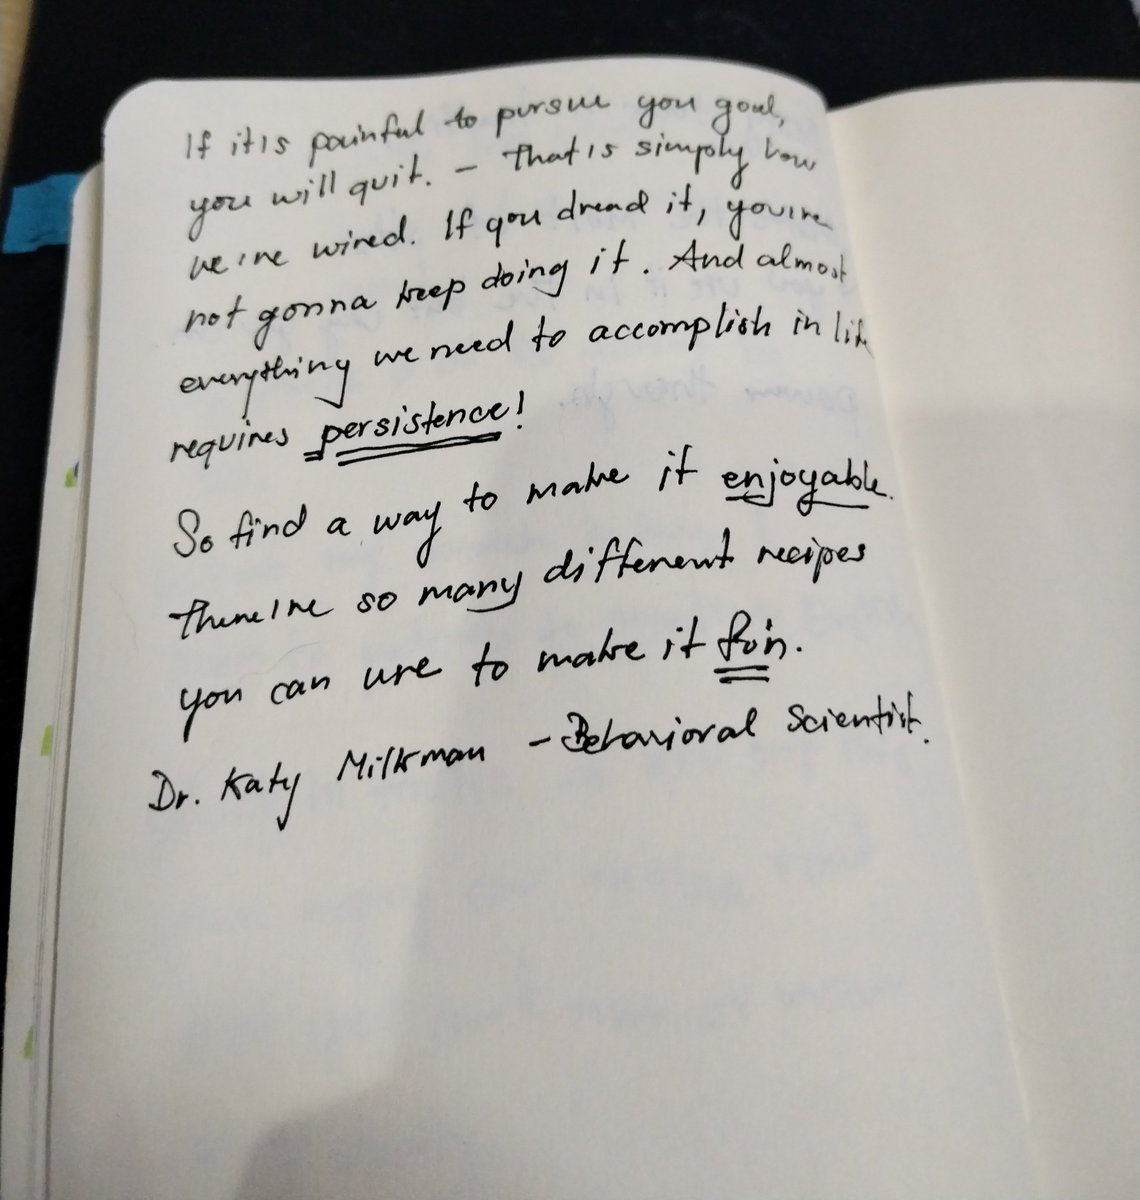 If it is painful to pursue you goal,
you will quit. - That is simply how
we're wired. If you dread it, you're
not gonna keep doing it. And almost
everything we need to accomplish in life
requires persistence!
So find a way to make it enjoyable.
There're so many different recipes
you can use to make it fun.
Dr. Katy Milkman - Behavioral Scientist.